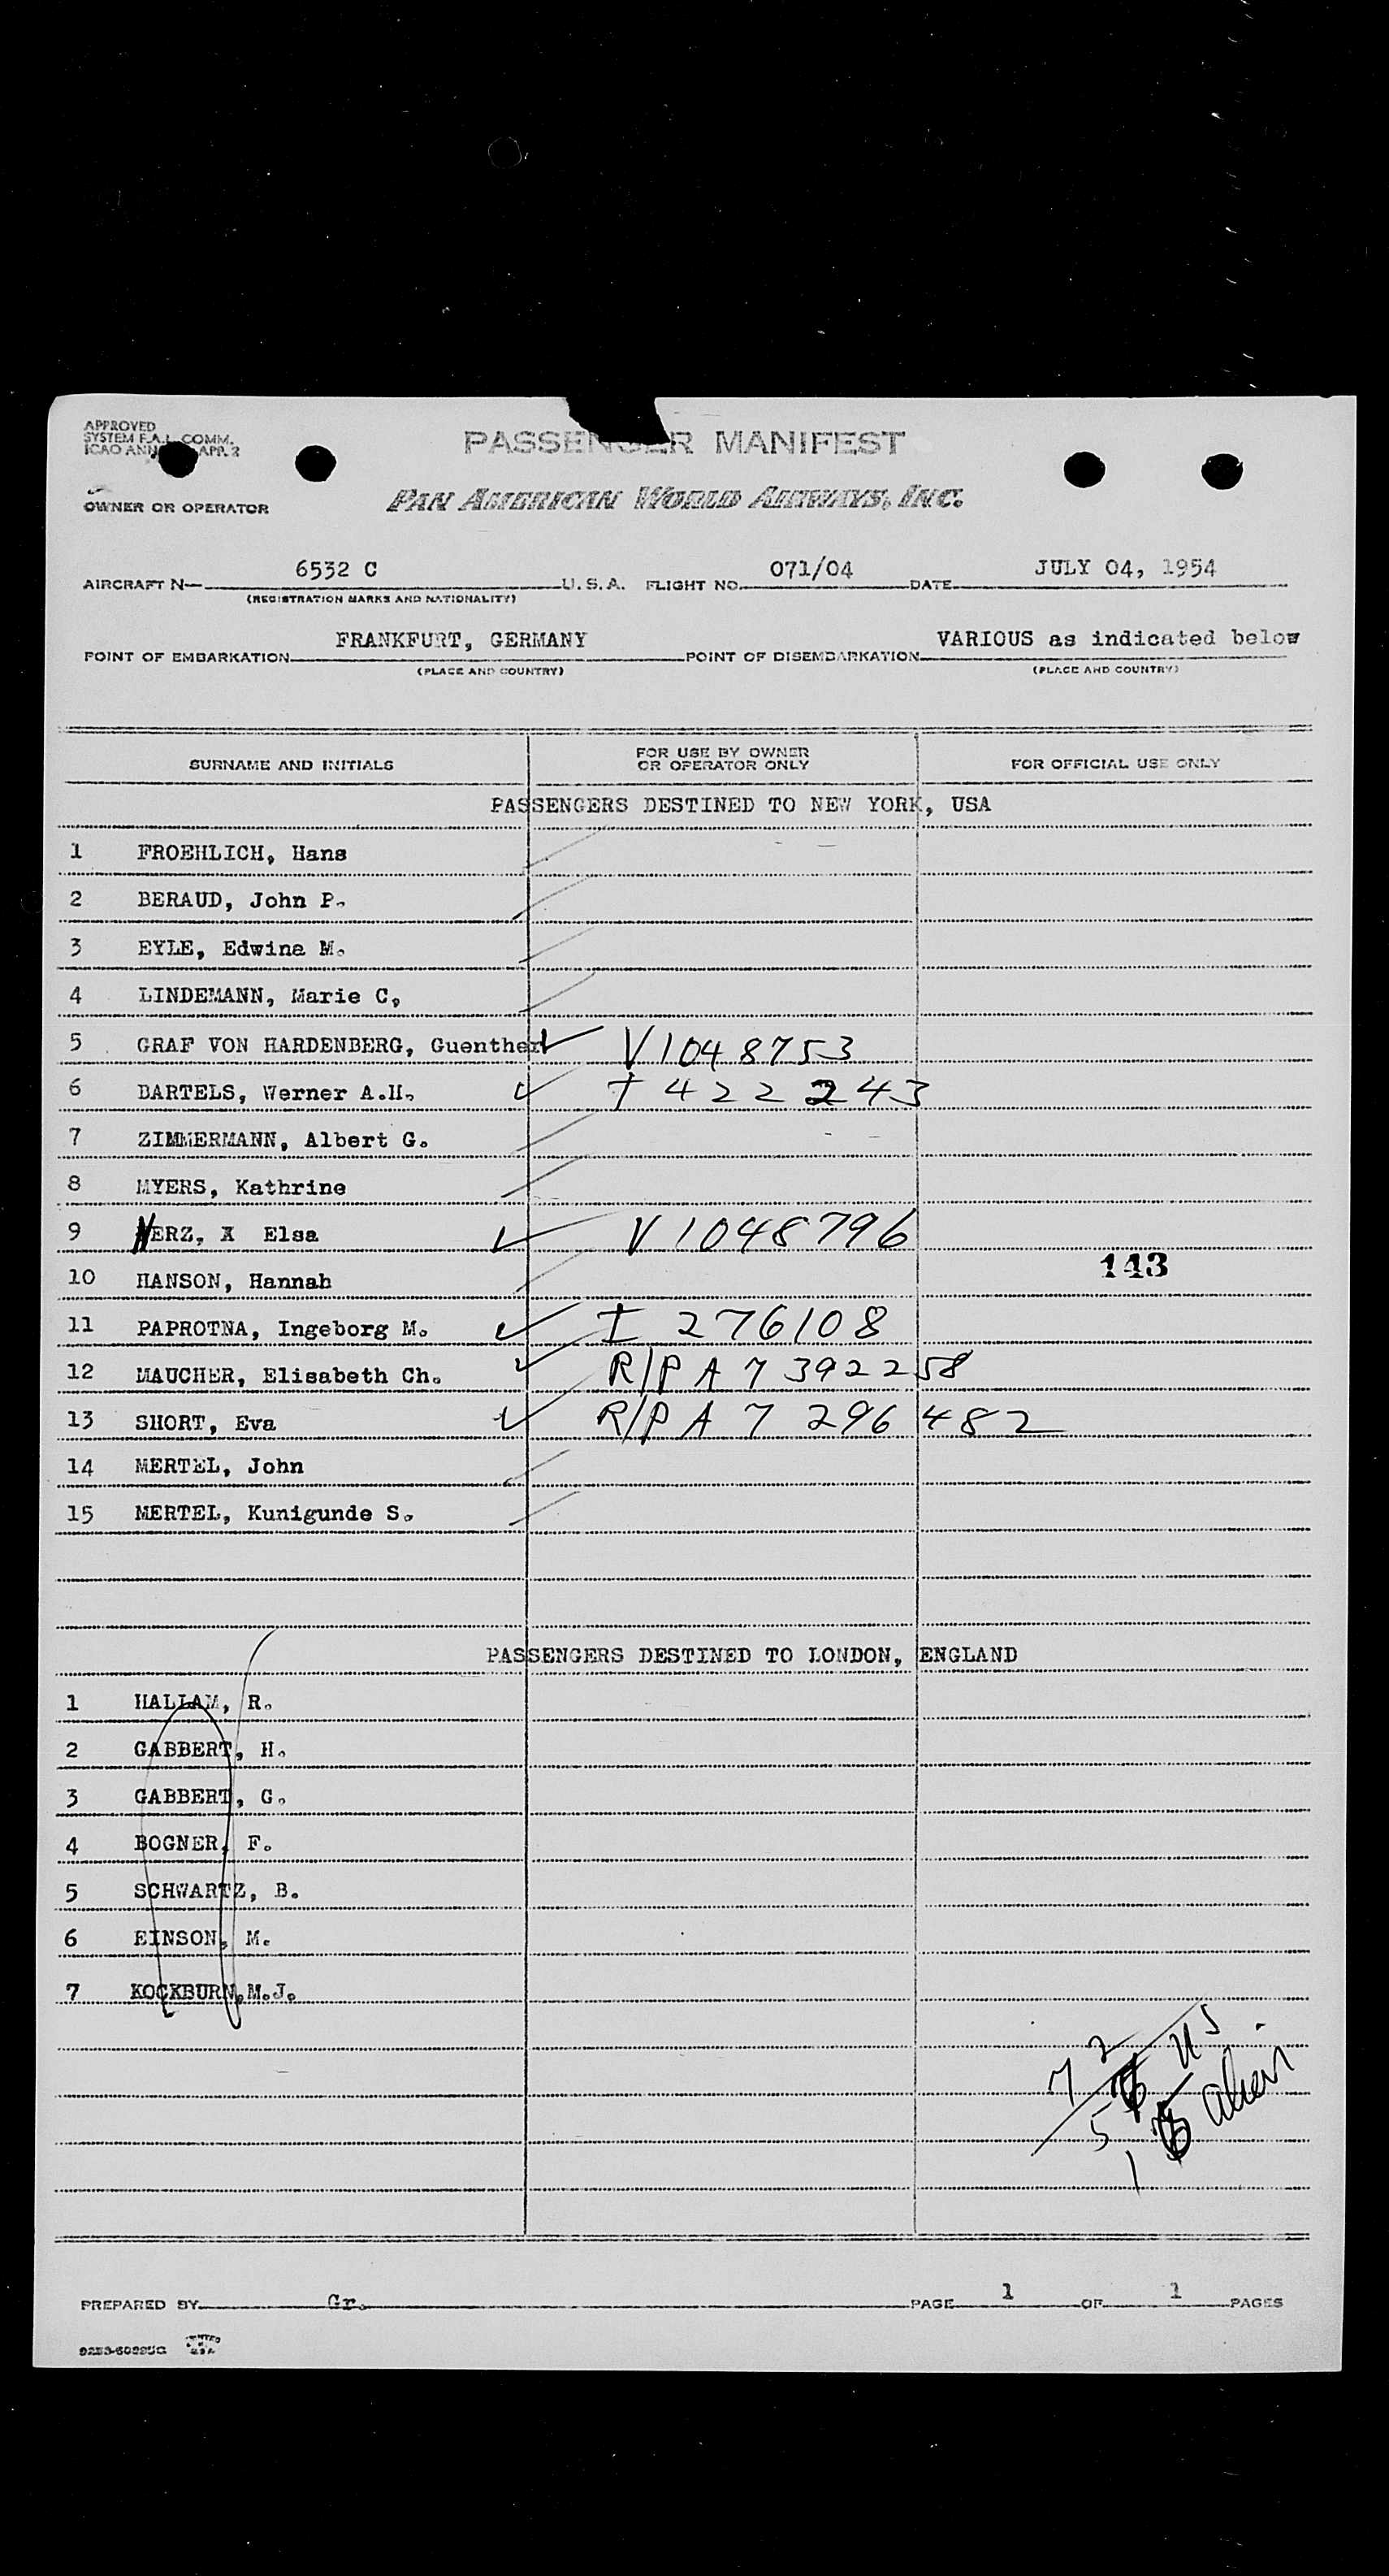 APPROVED
SYSTEM F.A.L. COMM.
ICAO ANN APP. 2
PASSENGER MANIFEST
PAN AMERICAN WORLD AIRWAYS, INC.
OWNER OR OPERATOR
AIRCRAFT N— 6532 C U.S.A. FLIGHT NO. 071/04 DATE JULY 04, 1954
(REGISTRATION MARKS AND NATIONALITY)
POINT OF EMBARKATION FRANKFURT, GERMANY POINT OF DISEMBARKATION VARIOUS as indicated below
(PLACE AND COUNTRY) (PLACE AND COUNTRY)
SURNAME AND INITIALS FOR USE BY OWNER OR OPERATOR ONLY FOR OFFICIAL USE ONLY
PASSENGERS DESTINED TO NEW YORK, USA
1 FROEHLICH, Hans
2 BERAUD, John P.
3 EYLE, Edwina M.
4 LINDEMANN, Marie C.
5 GRAF VON HARDENBERG, Guenther V1048753
6 BARTELS, Werner A.H. I 422243
7 ZIMMERMANN, Albert G.
8 MYERS, Kathrine
9 HERZ, X Elsa V1048796
143
10 HANSON, Hannah
11 PAPROTNA, Ingeborg M. I 276108
12 MAUCHER, Elisabeth Ch. R/P A 7 392258
13 SHORT, Eva R/P A 7 296 482
14 MERTEL, John
15 MERTEL, Kunigunde S.
PASSENGERS DESTINED TO LONDON, ENGLAND
1 HALLAM, R.
2 GABBERT, H.
3 GABBERT, G.
4 BOGNER, F.
5 SCHWARTZ, B.
6 EINSON, M.
7 KOCKBURN, M.J.
7 2 US
5 1 alien
PREPARED BY Gr. PAGE 1 OF 1 PAGES
PRINTED IN U.S.A.